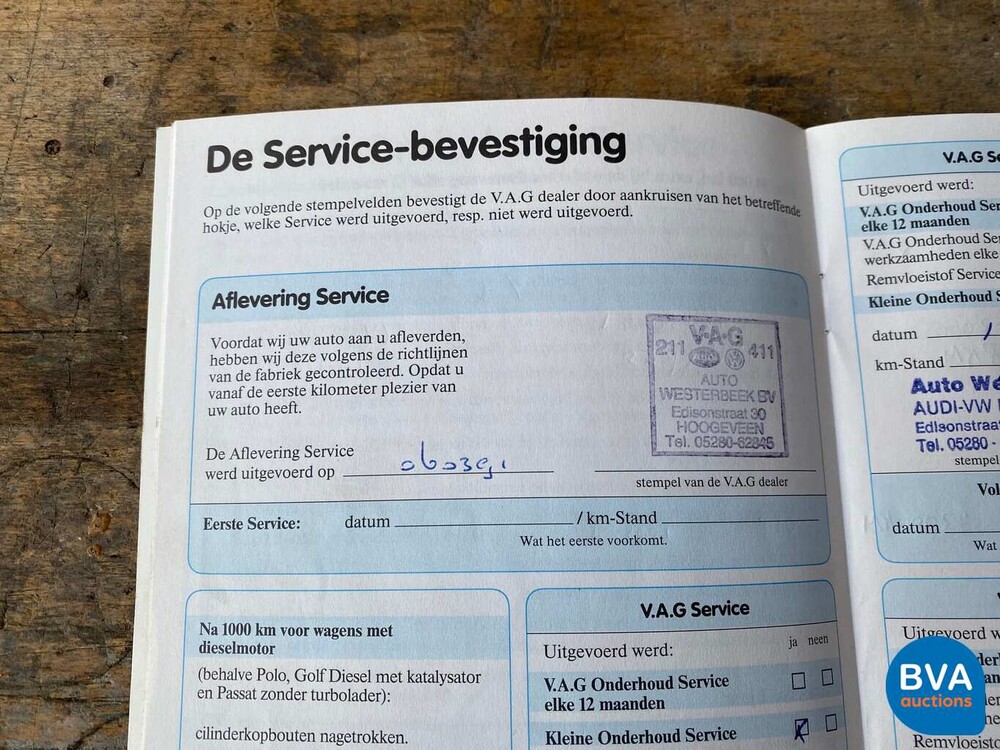 De Service-bevestiging
Op de volgende stempelvelden bevestigt de V.A.G dealer door aankruisen van het betreffende
hokje, welke Service werd uitgevoerd, resp. niet werd uitgevoerd.
Aflevering Service
Voordat wij uw auto aan u afleverden,
hebben wij deze volgens de richtlijnen
van de fabriek gecontroleerd. Opdat u
vanaf de eerste kilometer plezier van
uw auto heeft.
De Aflevering Service
werd uitgevoerd op 060391
V·A·G
211 411
AUTO
WESTERBEEK BV
Edisonstraat 30
HOOGEVEEN
Tel. 05280-62845
stempel van de V.A.G dealer
Eerste Service: datum / km-Stand
Wat het eerste voorkomt.
Na 1000 km voor wagens met
dieselmotor
(behalve Polo, Golf Diesel met katalysator
en Passat zonder turbolader):
cilinderkopbouten nagetrokken.
V.A.G Service
ja neen
Uitgevoerd werd:
V.A.G Onderhoud Service
elke 12 maanden
Kleine Onderhoud Service
V.A.G Se
Uitgevoerd werd:
V.A.G Onderhoud Ser
elke 12 maanden
V.A.G Onderhoud Ser
werkzaamheden elke
Remvloeistof Service
Kleine Onderhoud S
datum
km-Stand
Auto We
AUDI-VW
Edisonstraa
Tel. 05280 -
stempel
Vol
datum
Wat
Uitgevoerd w
Remvloeisto
BVA
auctions